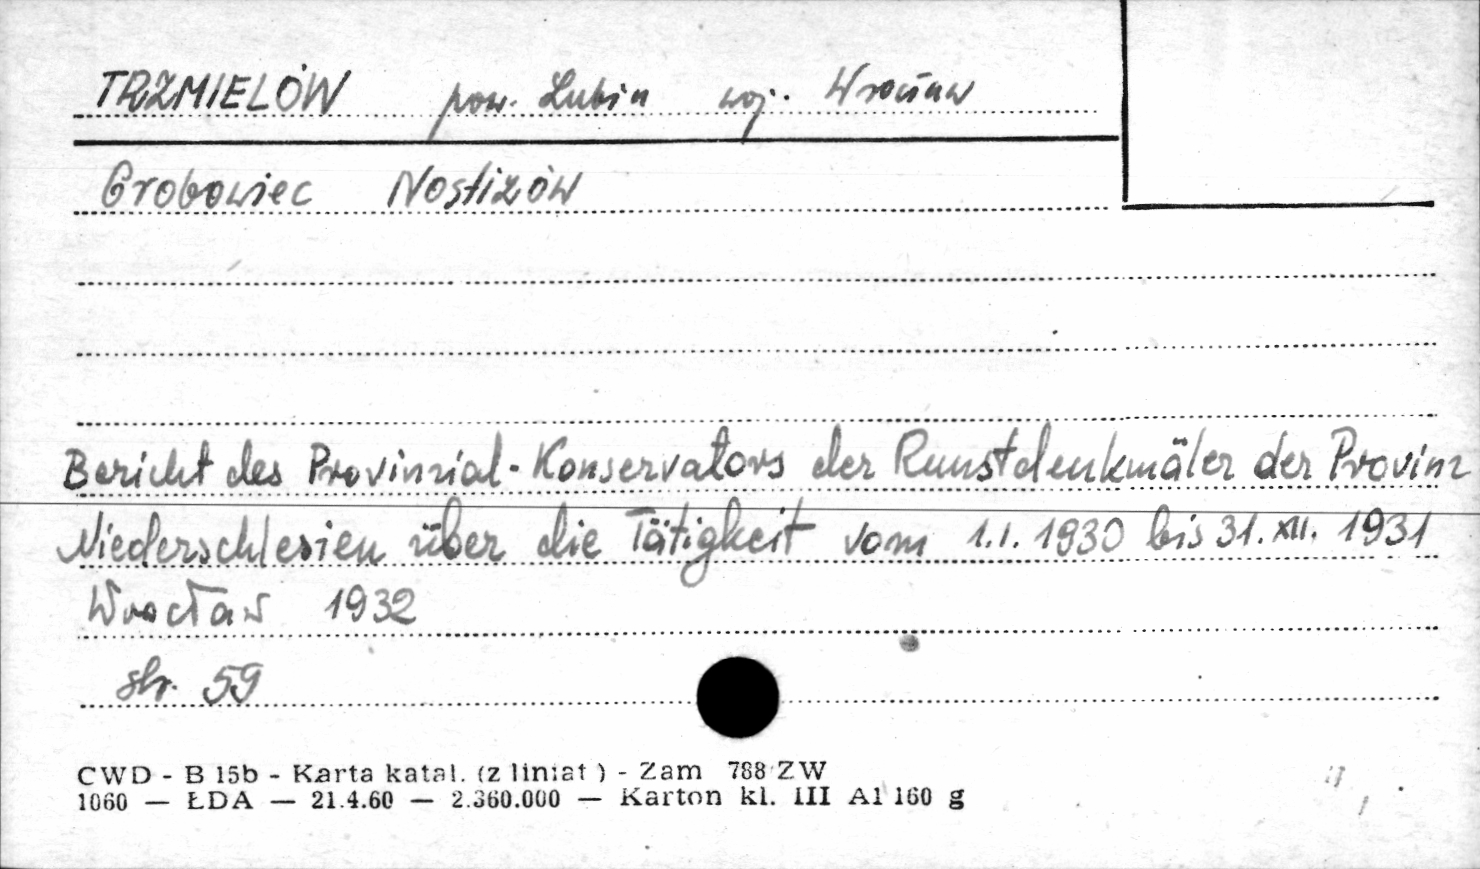 TRZMIELÓW pow. Lubin woj. Wrocław
Grobowiec Nostizów
Bericht des Provinzial-Konservators der Kunstdenkmäler der Provinz
Niederschlesien über die Tätigkeit vom 1.I. 1930 bis 31.XII. 1931
Wrocław 1932
str. 59
CWD - B 15b - Karta katal. (z liniat ) - Zam 788 ZW
1060 — ŁDA — 21.4.60 — 2.360.000 — Karton kl. III A1 160 g